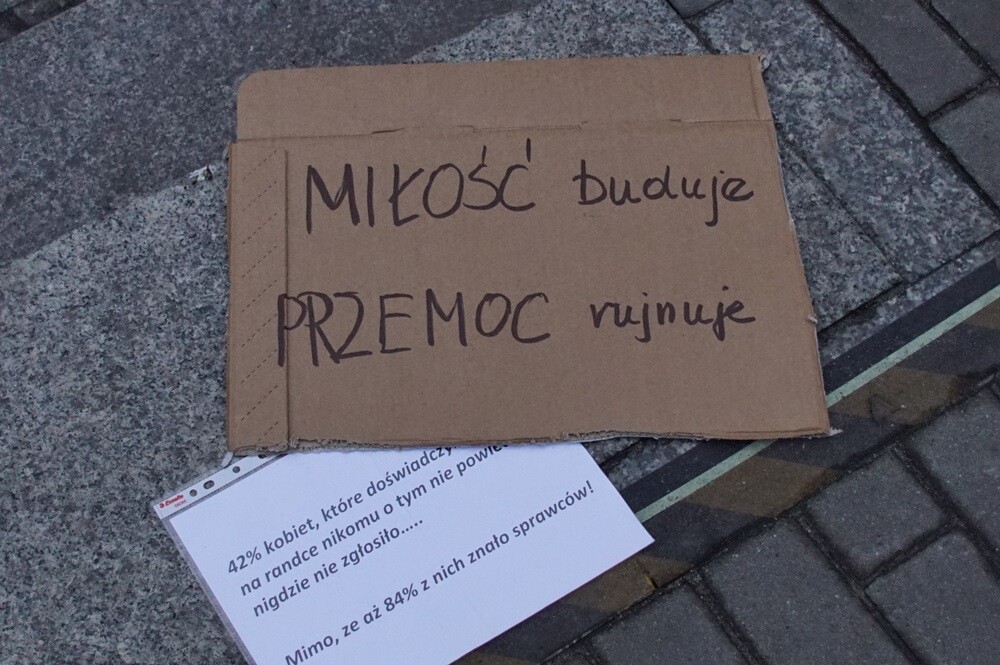 MIŁOŚĆ buduje
PRZEMOC rujnuje
42% kobiet, które
na randce nikomu o tym nie
nigdzie nie zgłosiło.....
Mimo, ze aż 84% z nich znało sprawców!